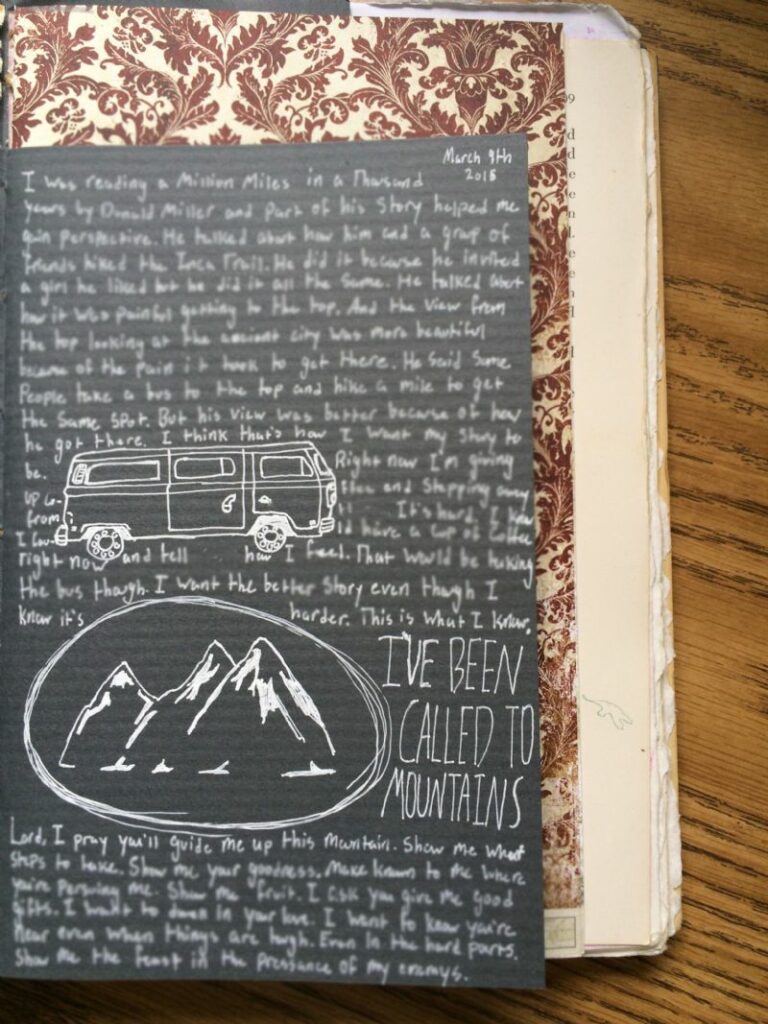 March 9th
2015
I was reading a Million Miles in a Thousand
years by Donald Miller and part of his story helped me
gain perspective. He talked about how him and a group of
friends hiked the Inca Trail. He did it because he invited
a girl he liked but he did it all the same. He talked about
how it was painful getting to the top. And the view from
the top looking at the ancient city was more beautiful
because of the pain it took to get there. He said some
People take a bus to the top and hike a mile to get
the same spot. But his view was better because of how
he got there. I think that's how I want my story to
be. Right now I'm giving
up co- ffee and stepping away
from It's hard. I know
I cou- ld have a cup of coffee
right now and tell how I feel. That would be taking
the bus though. I want the better story even though I
know it's harder. This is what I know.
I'VE BEEN
CALLED TO
MOUNTAINS
Lord, I pray you'll guide me up this mountain. Show me what
steps to take. Show me your goodness. Make known to me where
you're persuing me. Show me fruit. I ask you give me good
gifts. I want to in your love. I want to know you're
near even when things are tough. Even in the hard parts.
Show me the feast in the pressance of my enemys.